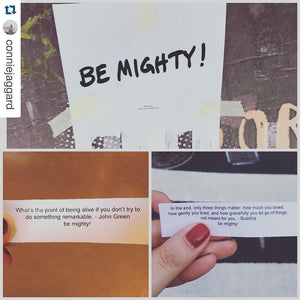 conniejaggard
BE MIGHTY!
OR
What's the point of being alive if you don't try to
do something remarkable. - John Green
be mighty!
In the end, only three things matter: how much you loved,
how gently you lived, and how gracefully you let go of things
not meant for you. - Buddha
be mighty!